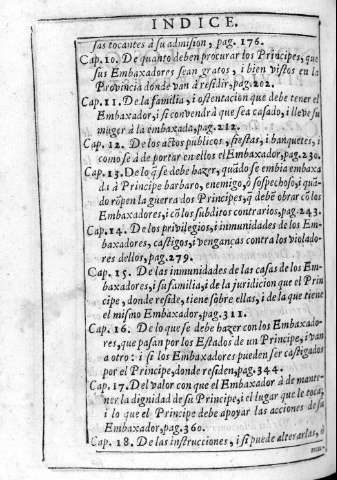 INDICE.
sas tocantes à su admision, pag. 176.
Cap. 10. De quanto deben procurar los Principes, que
sus Embaxadores sean gratos, i bien vistos en la
Provincia donde van à residir, pag. 202.
Cap. 11. De la familia, i ostentacion que debe tener el
Embaxador, i si convendrà que sea casado, i lleve su
muger à la embaxada, pag. 212.
Cap. 12. De los actos publicos, fiestas, i banquetes, i
como se à de portar en ellos el Embaxador, pag. 230.
Cap. 13. De lo q̃ se debe hazer, quãdo se embia embaxa
da à Principe barbaro, enemigo, ò sospechoso, i quã-
do rõpen la guerra dos Principes, q̃ debẽ obrar cõ los
Embaxadores, i cõ los subditos contrarios, pag. 243.
Cap. 14. De los privilegios, i inmunidades de los Em-
baxadores, castigos, i venganças contra los violado-
res dellos, pag. 279.
Cap. 15. De las inmunidades de las casas de los Em-
baxadores, i su familia, i de la juridicion que el Prin
cipe, donde reside, tiene sobre ellas, i de la que tiene
el mismo Embaxador, pag. 311.
Cap. 16. De lo que se debe hazer con los Embaxado-
res, que pasan por los Estados de un Principe, i van
a otro: i si los Embaxadores pueden ser castigados
por el Principe, donde residen, pag. 344.
Cap. 17. Del valor con que el Embaxador à de mante-
ner la dignidad de su Principe, i el lugar que le toca,
i lo que el Principe debe apoyar las acciones de su
Embaxador, pag. 360.
Cap. 18. De las instrucciones, i si puede alterarlas, ò